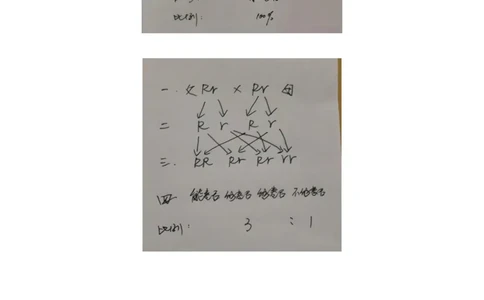 比例: 100%
一. 父 Rr × Rr 母
二 R r R r
三. RR Rr Rr rr
四 能卷舌 能卷舌 能卷舌 不能卷舌
比例: 3 : 1